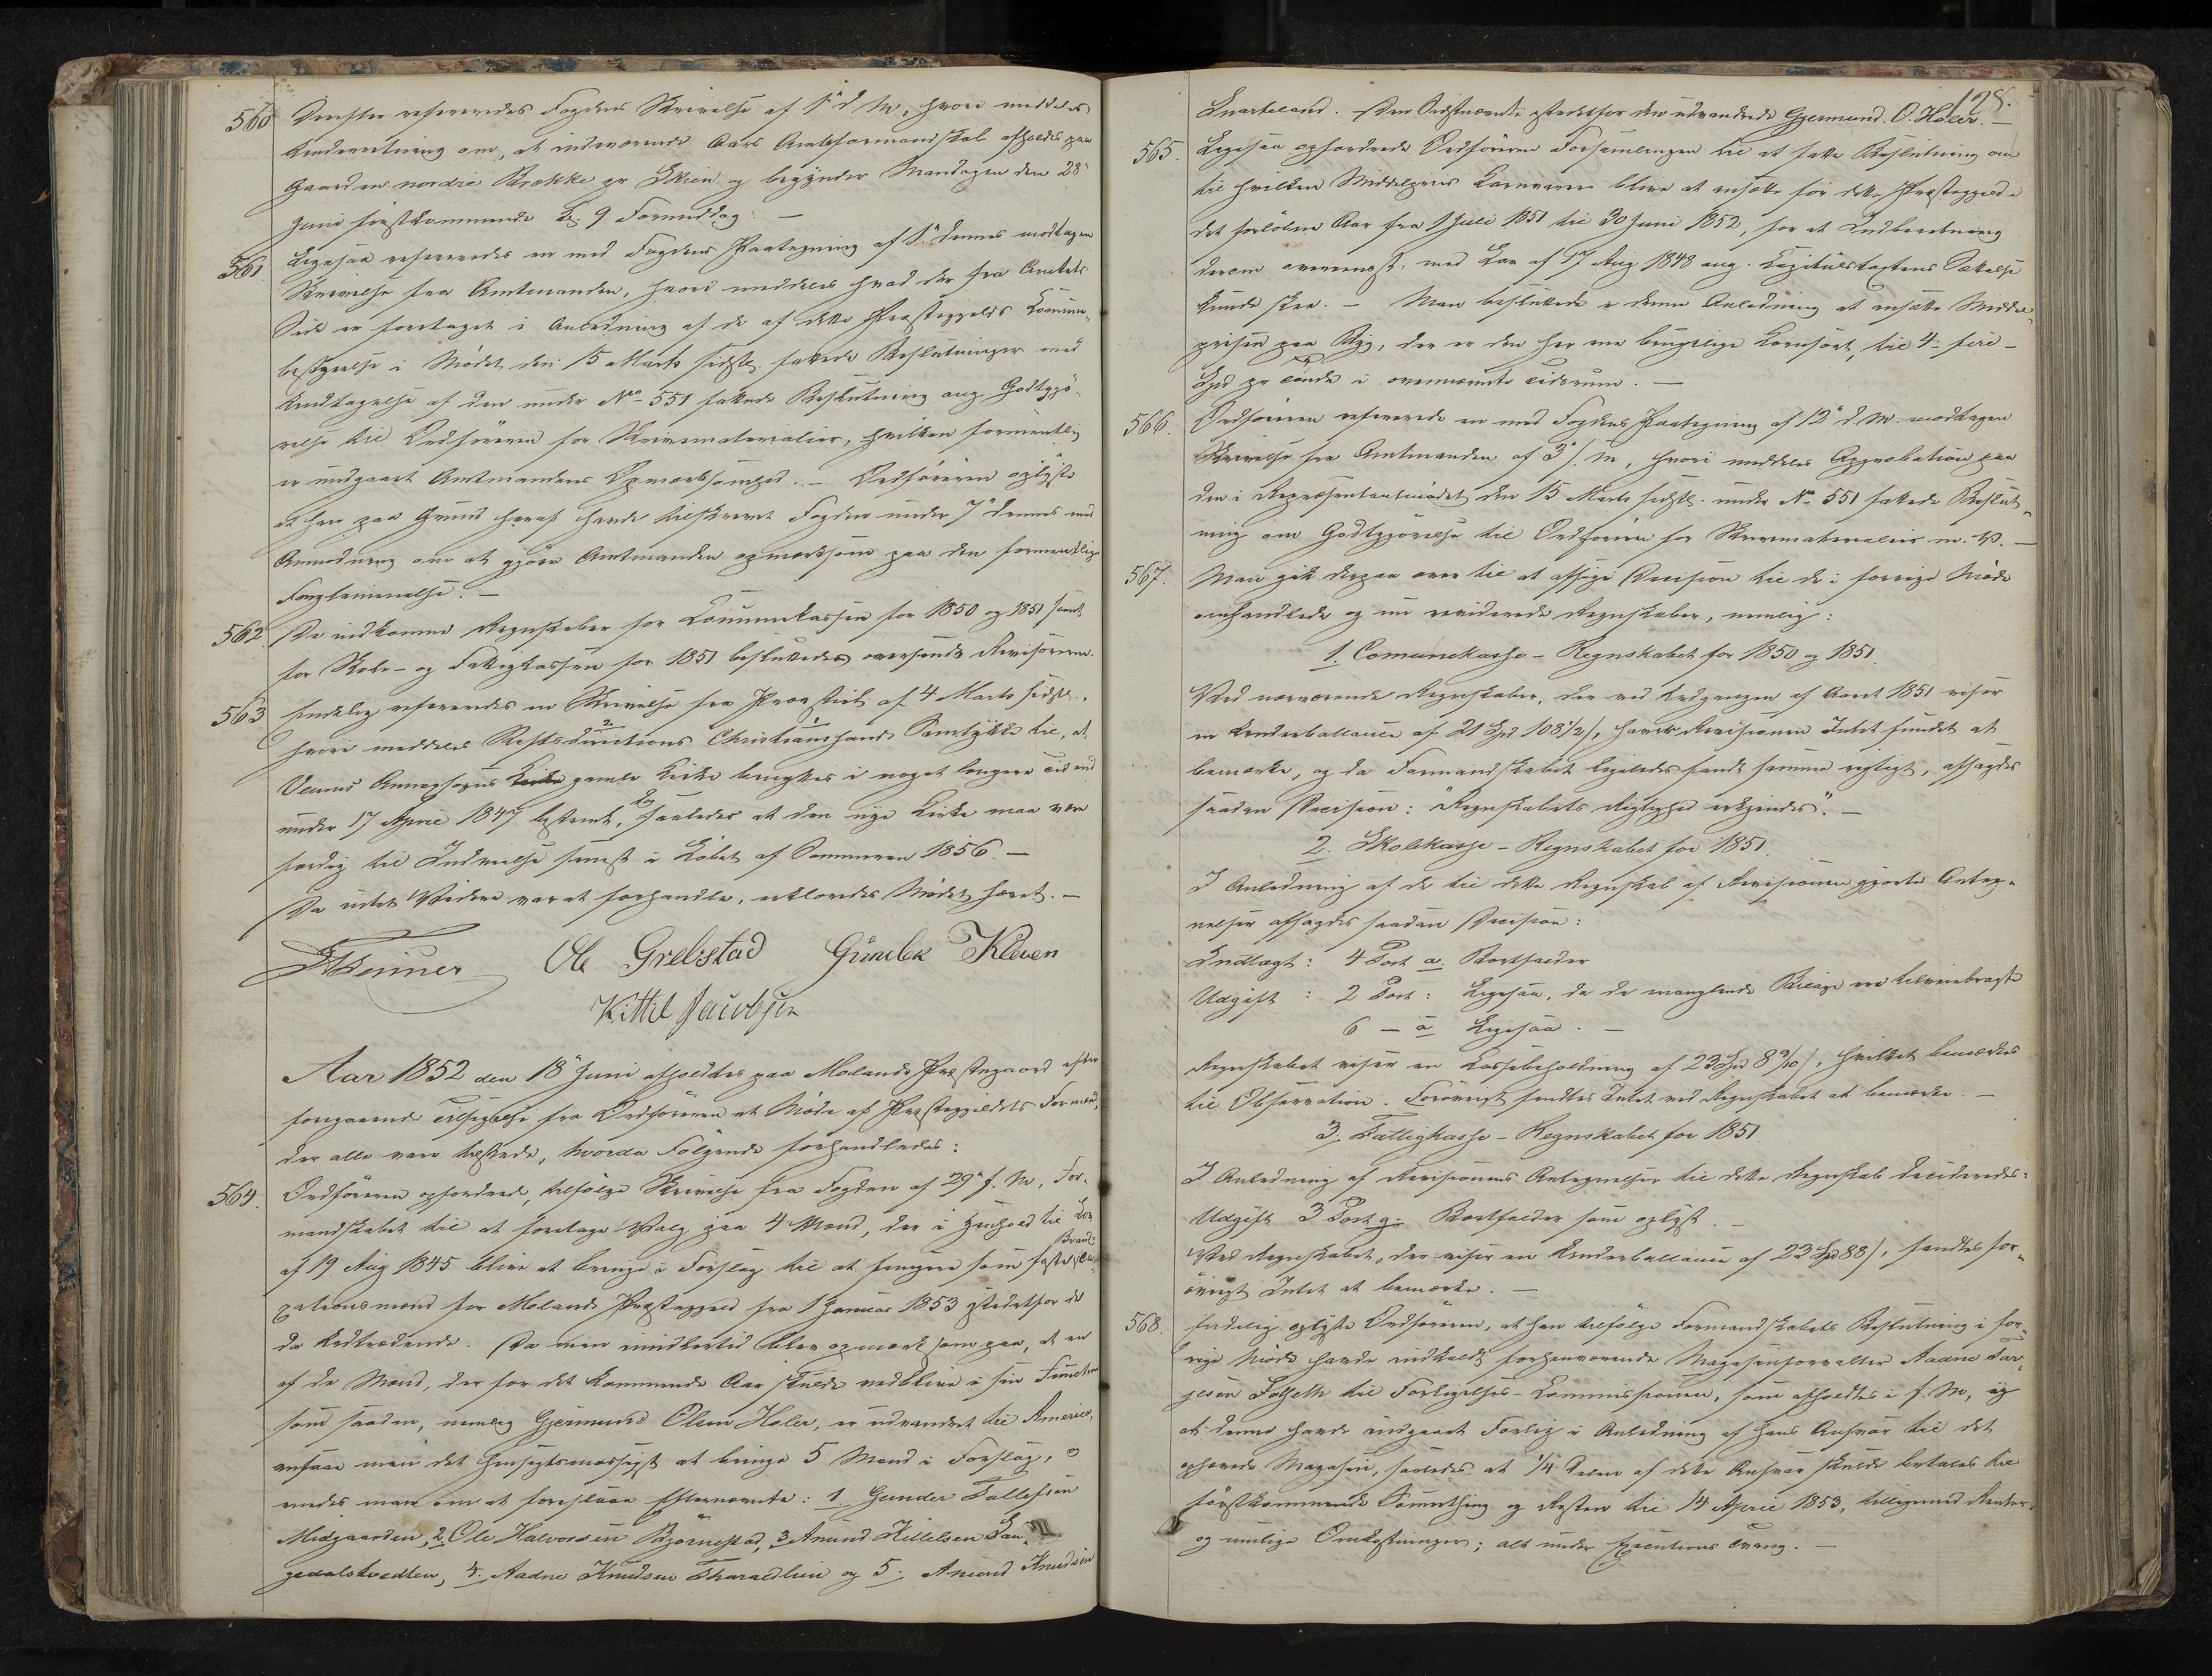 560 Derefter refereredes Fogdens Skrivelse af 1ste d. M., hvori meddeles
Underretning om, at indeværende Aars Amtsformandskab afholdes paa
Gaarden nordre Brække pr Skien og begynder Mandagen den 28de
Juni førstkommende Kl. 9 Formiddag. —
561 Ligesaa refereredes en med Fogdens Paategning af 1ste dennes modtagen
Skrivelse fra Amtmanden, hvori meddeles hvad der fra Amtets
Side er foretaget i Anledning af de af dette Præstegjelds Commune-
bestyrelse i Mødet den 15 Marts sidstl. fattede Beslutninger med
Undtagelse af den under No 551 fattede Beslutning ang. Godtgjø-
relse til Ordføreren for Skrivematerialier, hvilken formentlig
er undgaaet Amtmandens Opmærksomhed. — Ordføreren oplyste
at han paa Grund heraf havde tilskrevet Fogden under 7de dennes med
Anmodning om at gjøre Amtmanden opmærksom paa den formentlige
Forglemmelse. —
562. De indkomne Regnskaber for Communekassen for 1850 og 1851 samt
for Skole- og Fattigkassen for 1851 besluttedes oversendt Revisoren.
563 Endelig refereredes en Skrivelse fra Provstiet af 4 Marts sidstl.,
hvori meddeles Stiftsdirections Christianssands Samtykke til, at
Veums Annexsogns gamle Kirke benyttes i noget længere Tid end
under 17 April 1847 bestemt, saaledes at den nye Kirke maa være
færdig til Indvielse senest i Løbet af Sommeren 1856. —
Da intet Videre var at forhandle, erklæredes Mødet hævet. —
Ole Grebstad Gunlek Kleven
Kittil Jacobsen
Aar 1852 den 18de Juni afholdtes paa Molands Præstegaard efter
foregaaende Tilsigelse fra Ordføreren et Møde af Præstegjeldets Formænd,
der alle vare tilstede, hvorda Følgende forhandledes:
564. Ordføreren opfordrede, tilfølge Skrivelse fra Fogden af 29de f. M., For-
mandskabet til at foretage Valg paa 4 Mænd, der i Henhold til Lov
af 19 Aug 1845 blive at bringe i Forslag til at fungere som faste Brand-
taxationsmænd for Molands Præstegjeld fra 1 Januar 1853 istedetfor de
da Udtrædende. Da man imidlertid blev opmærksom paa, at en
af de Mænd, der for det kommende Aar skulde vedblive i sin Function
som saadan, nemlig Gjermund Olsen Høler, er udvandret til America,
ansaae man det hensigtsmæssigst at bringe 5 Mænd i Forslag, og
enedes man om at foreslaae Efternævnte: 1. Gunder Tallefsen
Midgaarden, 2. Ole Halvorsen Bjørnestad, 3 Amund Killelsen Lau-
gedalstvedten, 4. Aadne Knudsen Tharaldlien og 5. Amund Knudsen
128.
Svarteland. Den Sidstnævnte istedetfor den udvandrede Gjermund. O. Høler. —
565. Ligesaa opfordrede Ordføreren Forsamlingen til at fatte Beslutning om
til hvilken Middelpriis Kornvarer blive at ansætte for dette Præstegjeld i
det forløbne Aar fra 1 Juli 1851 til 30 Juni 1852, for at Indberetning
derom overensst. med Lov af 17 Aug 1848 ang. Capitelstaxtens Sættelse
kunde skee. — Man besluttede i denne Anledning at ansætte Middel-
prisen paa Byg, der er den her me brugelige Kornsort, til 4 - fire -
Spd pr Tønde i ovennævnte Tidsrum. —
566. Ordføreren refererede en med Fogdens Paategning af 12te d. M. modtagen
Skrivelse fra Amtmanden af 3de s. M, hvori meddeles Approbation paa
den i Repræsentantmødet den 15 Marts sidstl. under No 551 fattede Beslut-
ning om Godtgjørelse til Ordføreren for Skrivematerialier m. V. —
567. Man gik derpaa over til at afsige Decision til de i forrige Møde
omhandlede og nu reviderede Regnskaber, nemlig:
1. Comunekasse - Regnskabet for 1850 og 1851.
Ved nærværende Regnskaber, der ved Udgangen af Aaret 1851 viser
en Underballance af 21 Spd 108 1/2 s, havde Revisionen Intet fundet at
bemærke, og da Formandskabet ligeledes fandt samme rigtigt, afsagdes
saadan Decision: "Regnskabets Rigtighed erkjendes". —
2. Skolekasse - Regnskabet for 1851.
I Anledning af de til dette Regnskab af Revisionen gjorte Anteg-
nelser afsagdes saadan Decision:
Indtægt: 4 Post a. Bortfalder
Udgift : 2 Post: Ligesaa, da de manglende Bilage ere tilveiebragte
6 — a Ligesaa. —
Regnskabet viser en Cassebeholdning af 23 Spd 8 9/10 s, hvilket bemærkes
til Observation. Forøvrigt fandtes Intet ved Regnskabet at bemærke. —
3. Fattigkasse - Regnskabet for 1851
I Anledning af Revisionens Antegnelser til dette Regnskab decideredes:
Udgift 3 Post g. Bortfalder som oplyst. —
Ved Regnskabet, der viser en Underballance af 23 Spd 88 s, fandtes for-
øvrigt Intet at bemærke. —
568. Endelig oplyste Ordføreren, at han tilfølge Formandskabets Beslutning i for-
rige Møde havde indkaldt forhenværende Magasinforvalter Aadne Tar-
jesen Solseth til Forligelses-Commissionen, som afholdtes i f. M, og
at denne havde indgaaet Forlig i Anledning af hans Ansvar til det
ophævede Magasin, saaledes at 1/4 Delen af dette Ansvar skulde betales til
førstkommende Sommerthing og Resten til 14 April 1853, tilligemed Renter
og mulige Omkostninger; alt under Executions Tvang. —